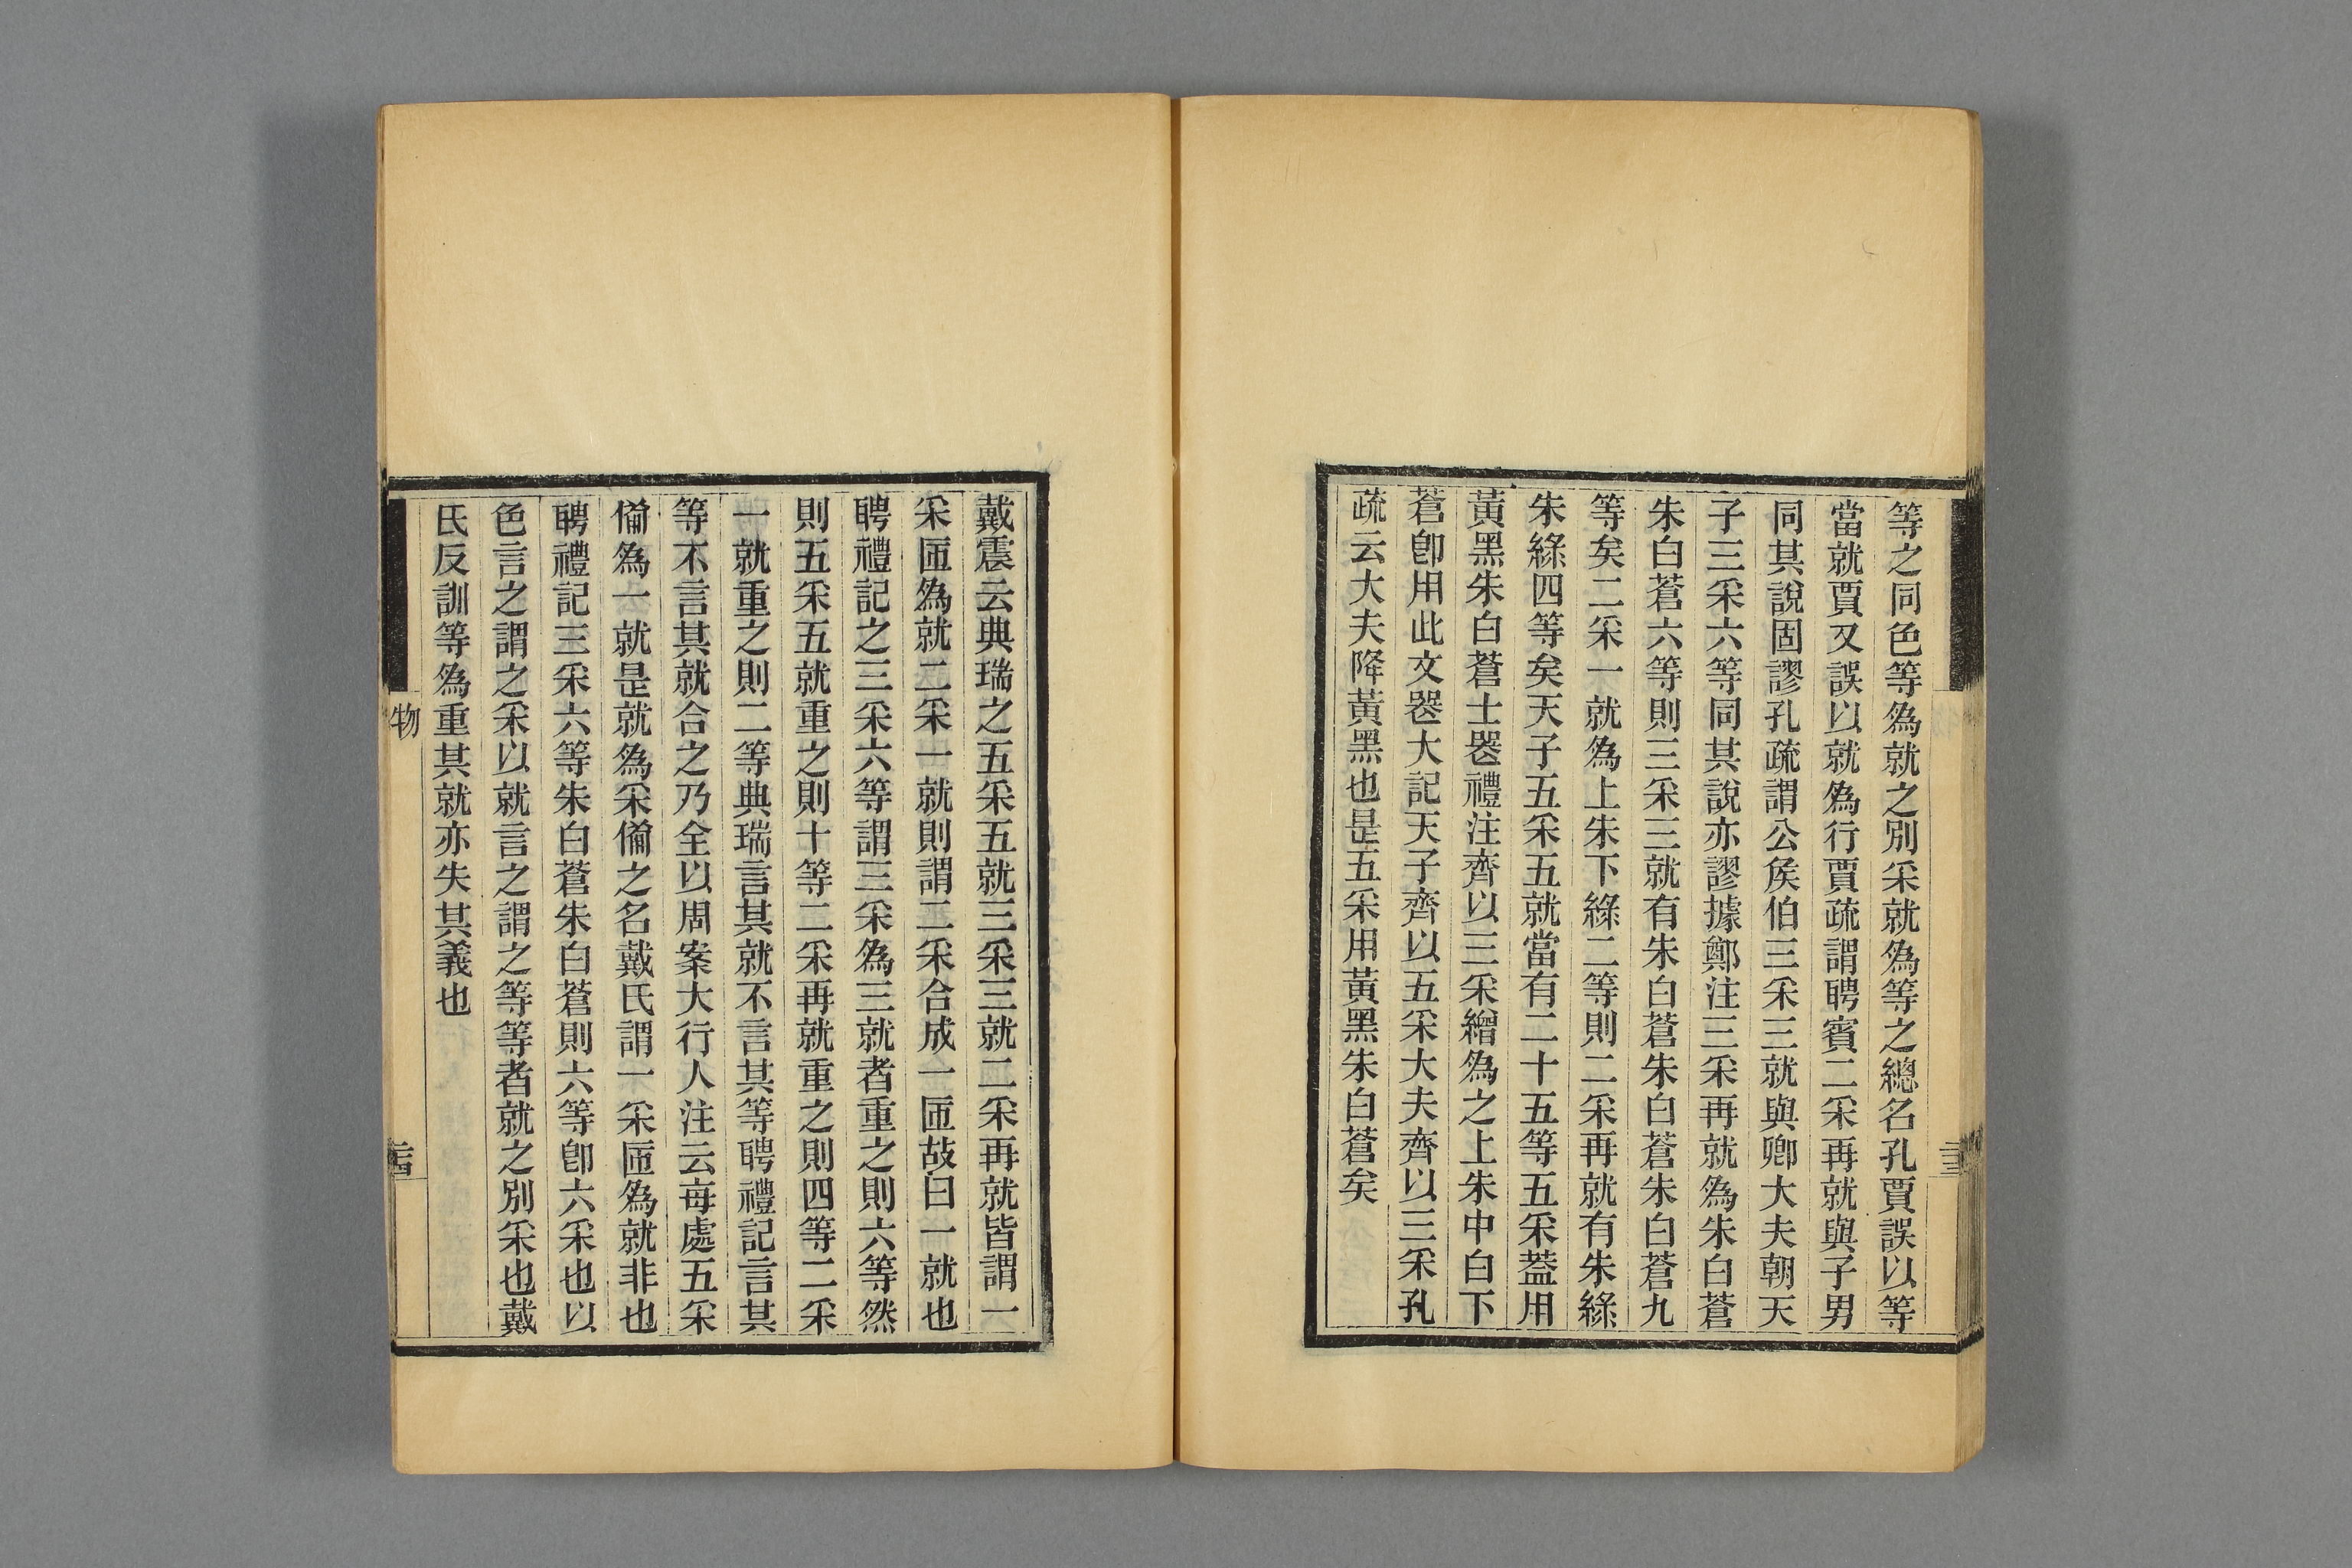 等之同色等為就之別采就為等之總名孔賈誤以等
當就賈又誤以就為行賈疏謂聘賓二采再就與子男
同其說固謬孔疏謂公矦伯三采三就與卿大夫朝天
子三采六等同其說亦謬據鄭注三采再就為朱白蒼
朱白蒼六等則三采三就有朱白蒼朱白蒼朱白蒼九
等矣二采一就為上朱下綠二等則二采再就有朱綠
朱綠四等矣天子五采五就當有二十五等五采葢用
黃黑朱白蒼士喪禮注齊以三采繒為之上朱中白下
蒼卽用此文喪大記天子齊以五采大夫齊以三采孔
疏云大夫降黃黑也是五采用黃黑朱白蒼矣
戴震云典瑞之五采五就三采三就二采再就皆謂一
采匝為就二采一就則謂二采合成一匝故曰一就也
聘禮記之三采六等謂三采為三就者重之則六等然
則五采五就重之則十等二采再就重之則四等二采
一就重之則二等典瑞言其就不言其等聘禮記言其
等不言其就合之乃全以周案大行人注云每處五采
備為一就是就為采備之名戴氏謂一采匝為就非也
聘禮記三采六等朱白蒼朱白蒼則六等卽六采也以
色言之謂之采以就言之謂之等等者就之別采也戴
氏反訓等為重其就亦失其義也
物